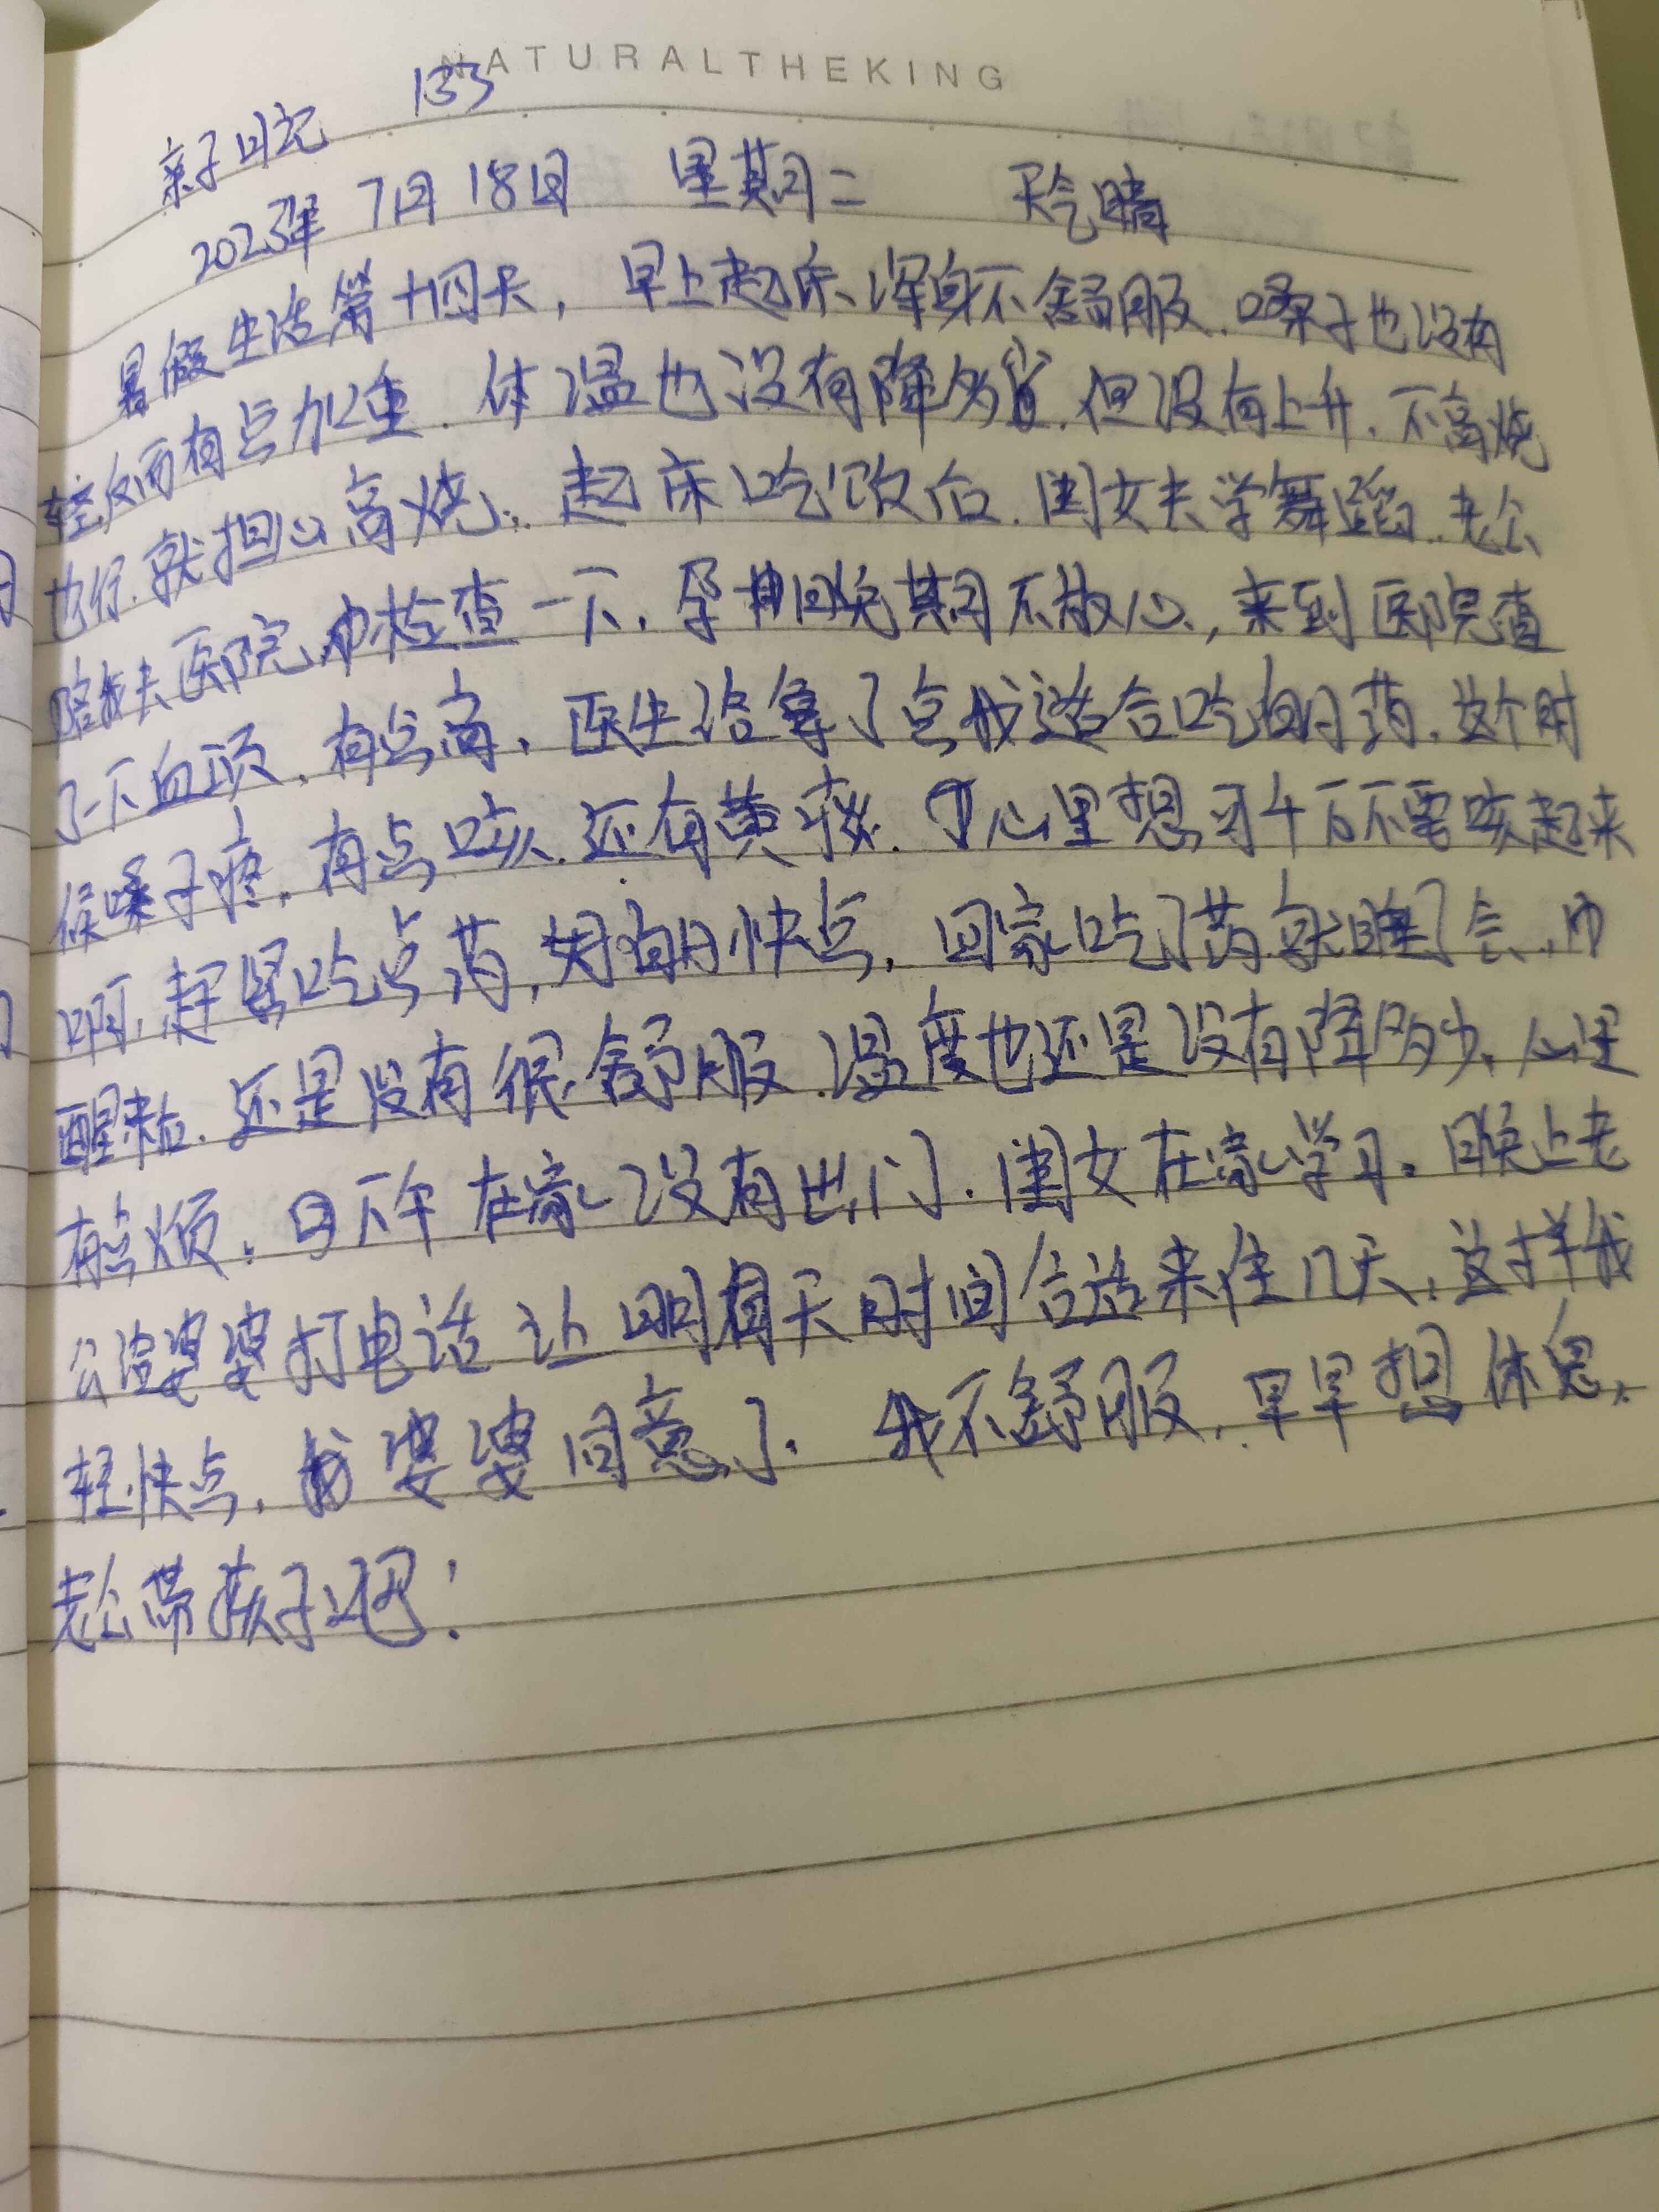 NATURALTHEKING
亲子日记 133
2023年 7月18日 星期二 天气晴
暑假生活第十四天，早上起床、浑身不舒服，嗓子也没有
轻反而有点加重．体温也没有降多少，但没有上升．不高烧
也行．就担心高烧，起床吃饭后．闺女去学舞蹈．老公
陪我去医院检查一下，孕晚期不放心，来到医院查
了一下血项，有点高，医生给拿了点我适合吃的药．这个时
候嗓子疼，有点咳．还有黄痰．心里想可千万不要咳起来
啊，赶紧吃点药，好的快点，回家吃了药就睡了会，
醒来后．还是没有很舒服．温度也还是没有降多少，心里
有点烦．下午在家没有出门．闺女在家学习。晚上老
公给婆婆打电话让明天时间合适来住几天，这样我
轻快点，婆婆同意了．我不舒服，早早想休息，
老公带孩子吧！